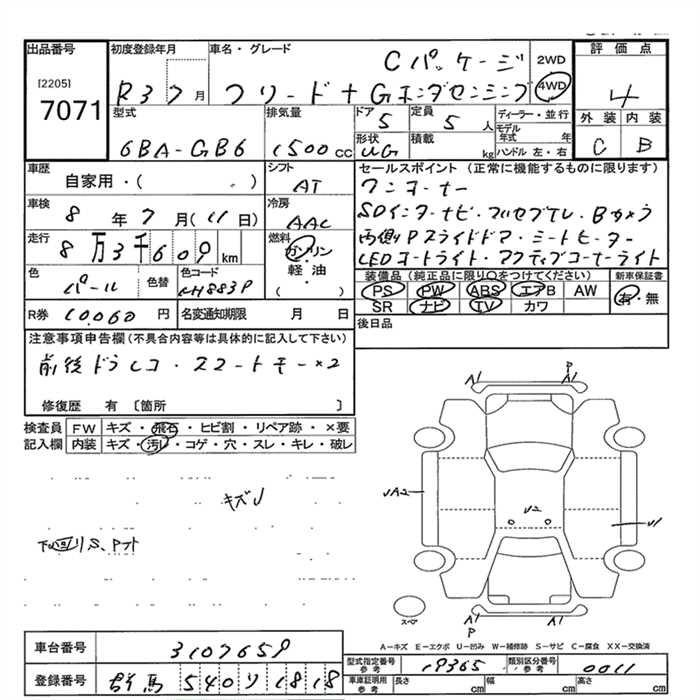 出品番号 初度登録年月 車名・グレード 評価点
[2205]
7071
R3 7月 フリード+G ホンダセンシング Cパッケージ 2WD 4WD
4
型式 排気量 ドア 定員 ディーラー・並行 外装 内装
6BA-GB6 1500cc 5 5人 モデル年式 年 C B
形状 積載 ハンドル 左・右
UG kg
車歴 シフト セールスポイント(正常に機能するものに限ります)
自家用・( ) AT ワンオーナー
車検 冷房
8年7月(11日) AAC SDインターナビ・フルセグTV・Bカメラ
走行 燃料 両側Pスライドドア・シートヒーター
8万3千609km ガソリン 軽・油 ( ・ ) LEDオートライト・アクティブコーナーライト
色 色替 色コード 装備品(純正品に限り○をつけてください) 新車保証書
パール NH883P PS PW ABS エアB AW 有・無
SR ナビ TV カワ
R券 10,060円 名変通知期限 月 日 後日品
注意事項申告欄(不具合内容等は具体的に記入して下さい)
前後ドラレコ・スマートキー×2
修復歴 有 〔箇所 〕
検査員 FW キズ・飛石・ヒビ割・リペア跡・×要
記入欄 内装 キズ・汚れ・コゲ・穴・スレ・キレ・破レ
キズJ
下回りS、Pフト
P
A1 A1
UA2 U2 U1
A1 A1
P
スペア
A-キズ E-エクボ U-凹み W-補修跡 S-サビ C-腐食 XX-交換済
車台番号 3107659
型式指定番号 参考 19365 類別区分番号 参考 0011
登録番号 群馬 540 り 1818
車庫証明用 参考 長さ cm 幅 cm 高さ cm